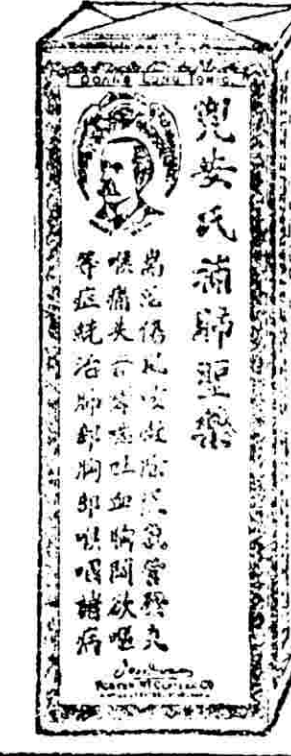 DOANS LUNG TONIC
兜安氏補肺聖藥
治傷風咳嗽除痰氣管發炎
喉痛失音哮喘吐血胸悶欲嘔
等症統治肺部胸部喉咽諸病
FOSTER McCLELLAN CO